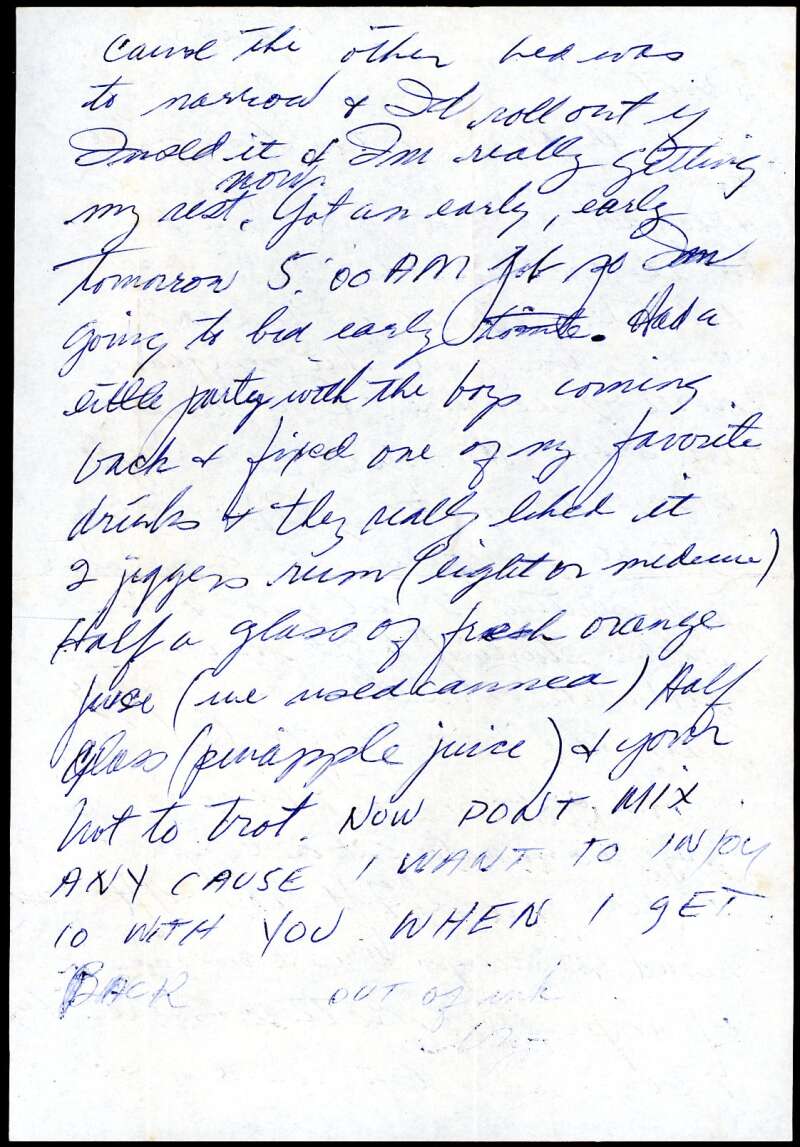 cause the other bed was
to narrow & I'd roll out if
I used it & I'm really getting
now
my rest. Got an early, early
tomorrow 5:00 AM job so I'm
going to bed early tonite. Had a
little party with the boys coming
back & fixed one of my favorite
drinks & they really liked it
2 jiggers rum (light or medium)
Half a glass of fresh orange
juice (we used canned) Half
glass (pineapple juice) & your
hot to trot. NOW DONT MIX
ANY CAUSE I WANT TO INJOY
10 WITH YOU WHEN I GET
BACK out of ink